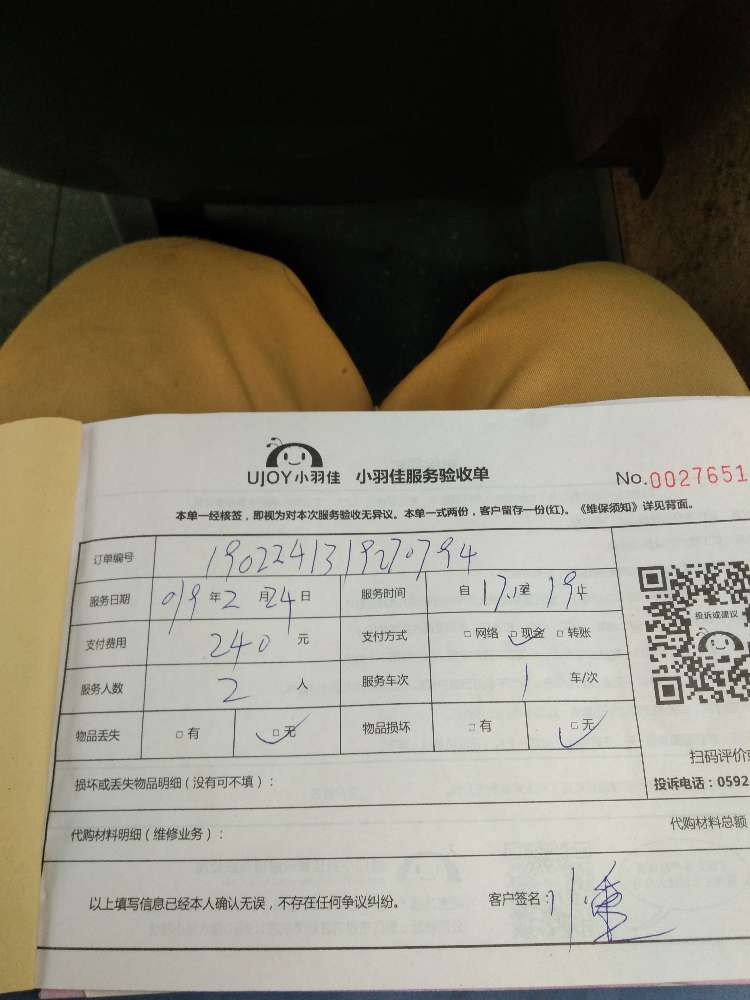 UJOY小羽佳 小羽佳服务验收单 No.0027651
本单一经核签，即视为对本次服务验收无异议。本单一式两份，客户留存一份(红)。《维保须知》详见背面。
订单编号 190224131920794
服务日期 019年2月24日 服务时间 自 17 至 19 止
支付费用 240 元 支付方式 □网络 □现金 □转账
服务人数 2 人 服务车次 1 车/次
物品丢失 □有 □无 物品损坏 □有 □无
投诉或建议
扫码评价
损坏或丢失物品明细（没有可不填）： 投诉电话：0592
代购材料明细（维修业务）： 代购材料总额
以上填写信息已经本人确认无误，不存在任何争议纠纷。 客户签名：